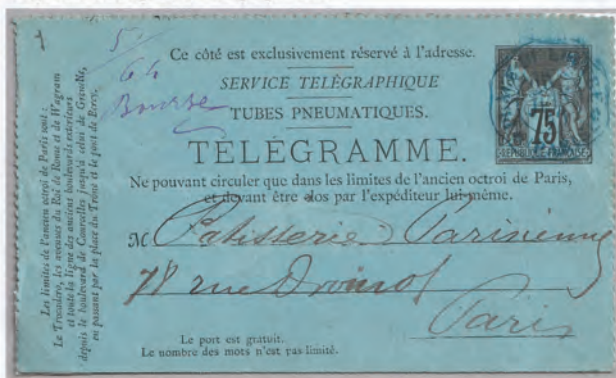 5
64
Bourse
Ce côté est exclusivement réservé à l'adresse.
SERVICE TELÉGRAPHIQUE
TUBES PNEUMATIQUES.
TELÉGRAMME.
Ne pouvant circuler que dans les limites de l'ancien octroi de Paris,
et devant être clos par l'expéditeur lui-même.
75
REPUBLIQUE FRANÇAISE
M Patisserie Parisienne
78 rue Drouot
Paris
Le port est gratuit.
Le nombre des mots n'est pas limité.
Les limites de l'ancien octroi de Paris sont:
Le Trocadéro, les avenues du Roi de Rome et de Wagram
et toute la ligne des anciens boulevards extérieurs
depuis le boulevard de Courcelles jusqu'à celui de Grenelle,
en passant par la place du Trône et le pont de Bercy.